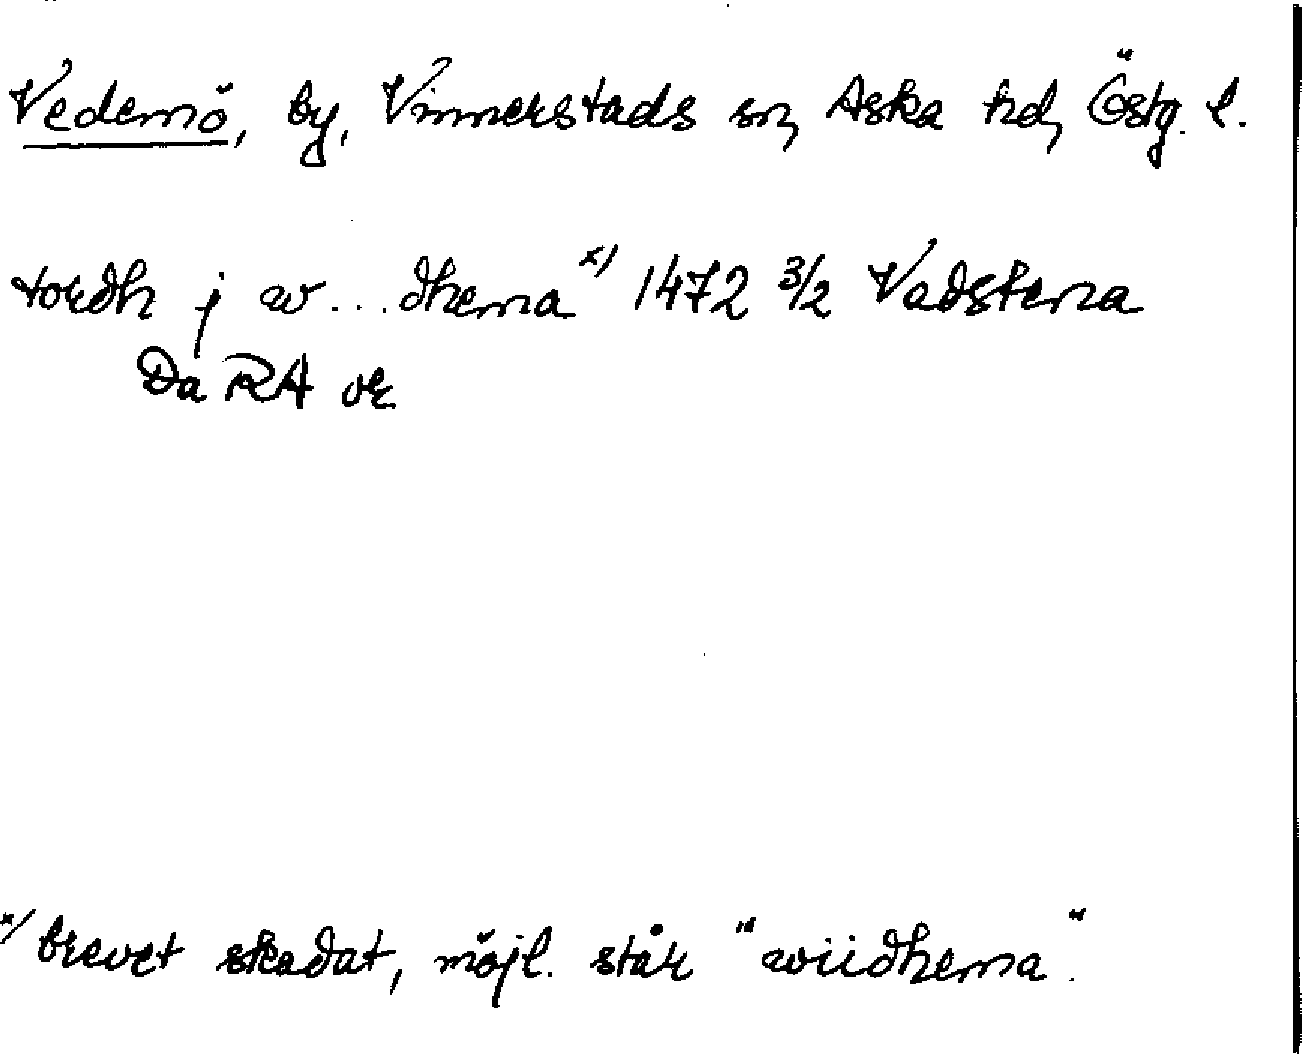 Vedemö, by, Vinnerstads sn, Aska hd, Östg. l.
tordh j w...dhema x) 1472 3/2 Vadstena
Da RA or
x/ brevet skadat, möjl. står "wiidhema".